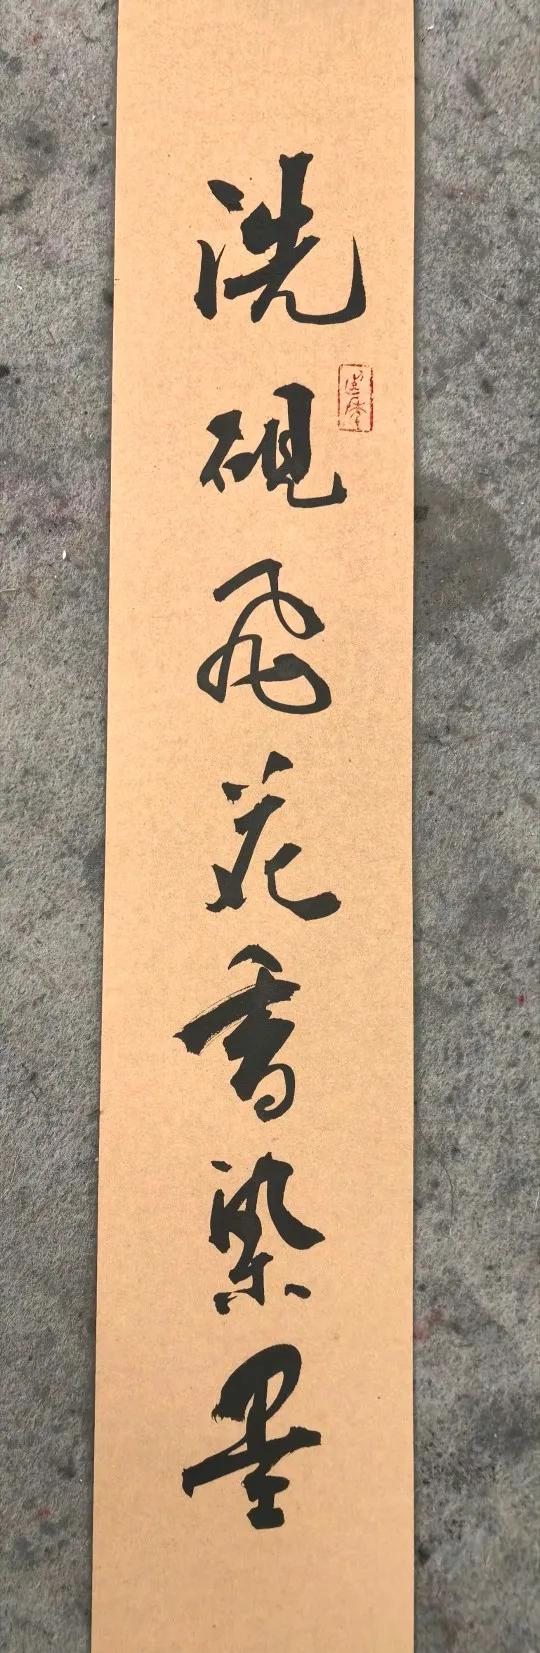 洗砚飞花香染墨